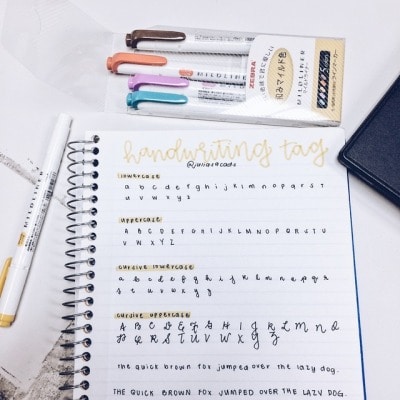 ZEBRA
MILDLINER
handwriting tag
lowercase
a b c d e f g h i j k l m n o p q r s t
u v w x y z
uppercase
A B C D E F G H I J K L M N O P Q R S T U
V W X Y Z
cursive lowercase
a b c d e f g h i j k l m n o p q r
s t u v w x y z
cursive uppercase
A B C D E F G H I J K L M N O
P Q R S T U V W X Y Z
the quick brown fox jumped over the lazy dog.
THE QUICK BROWN FOX JUMPED OVER THE LAZY DOG.